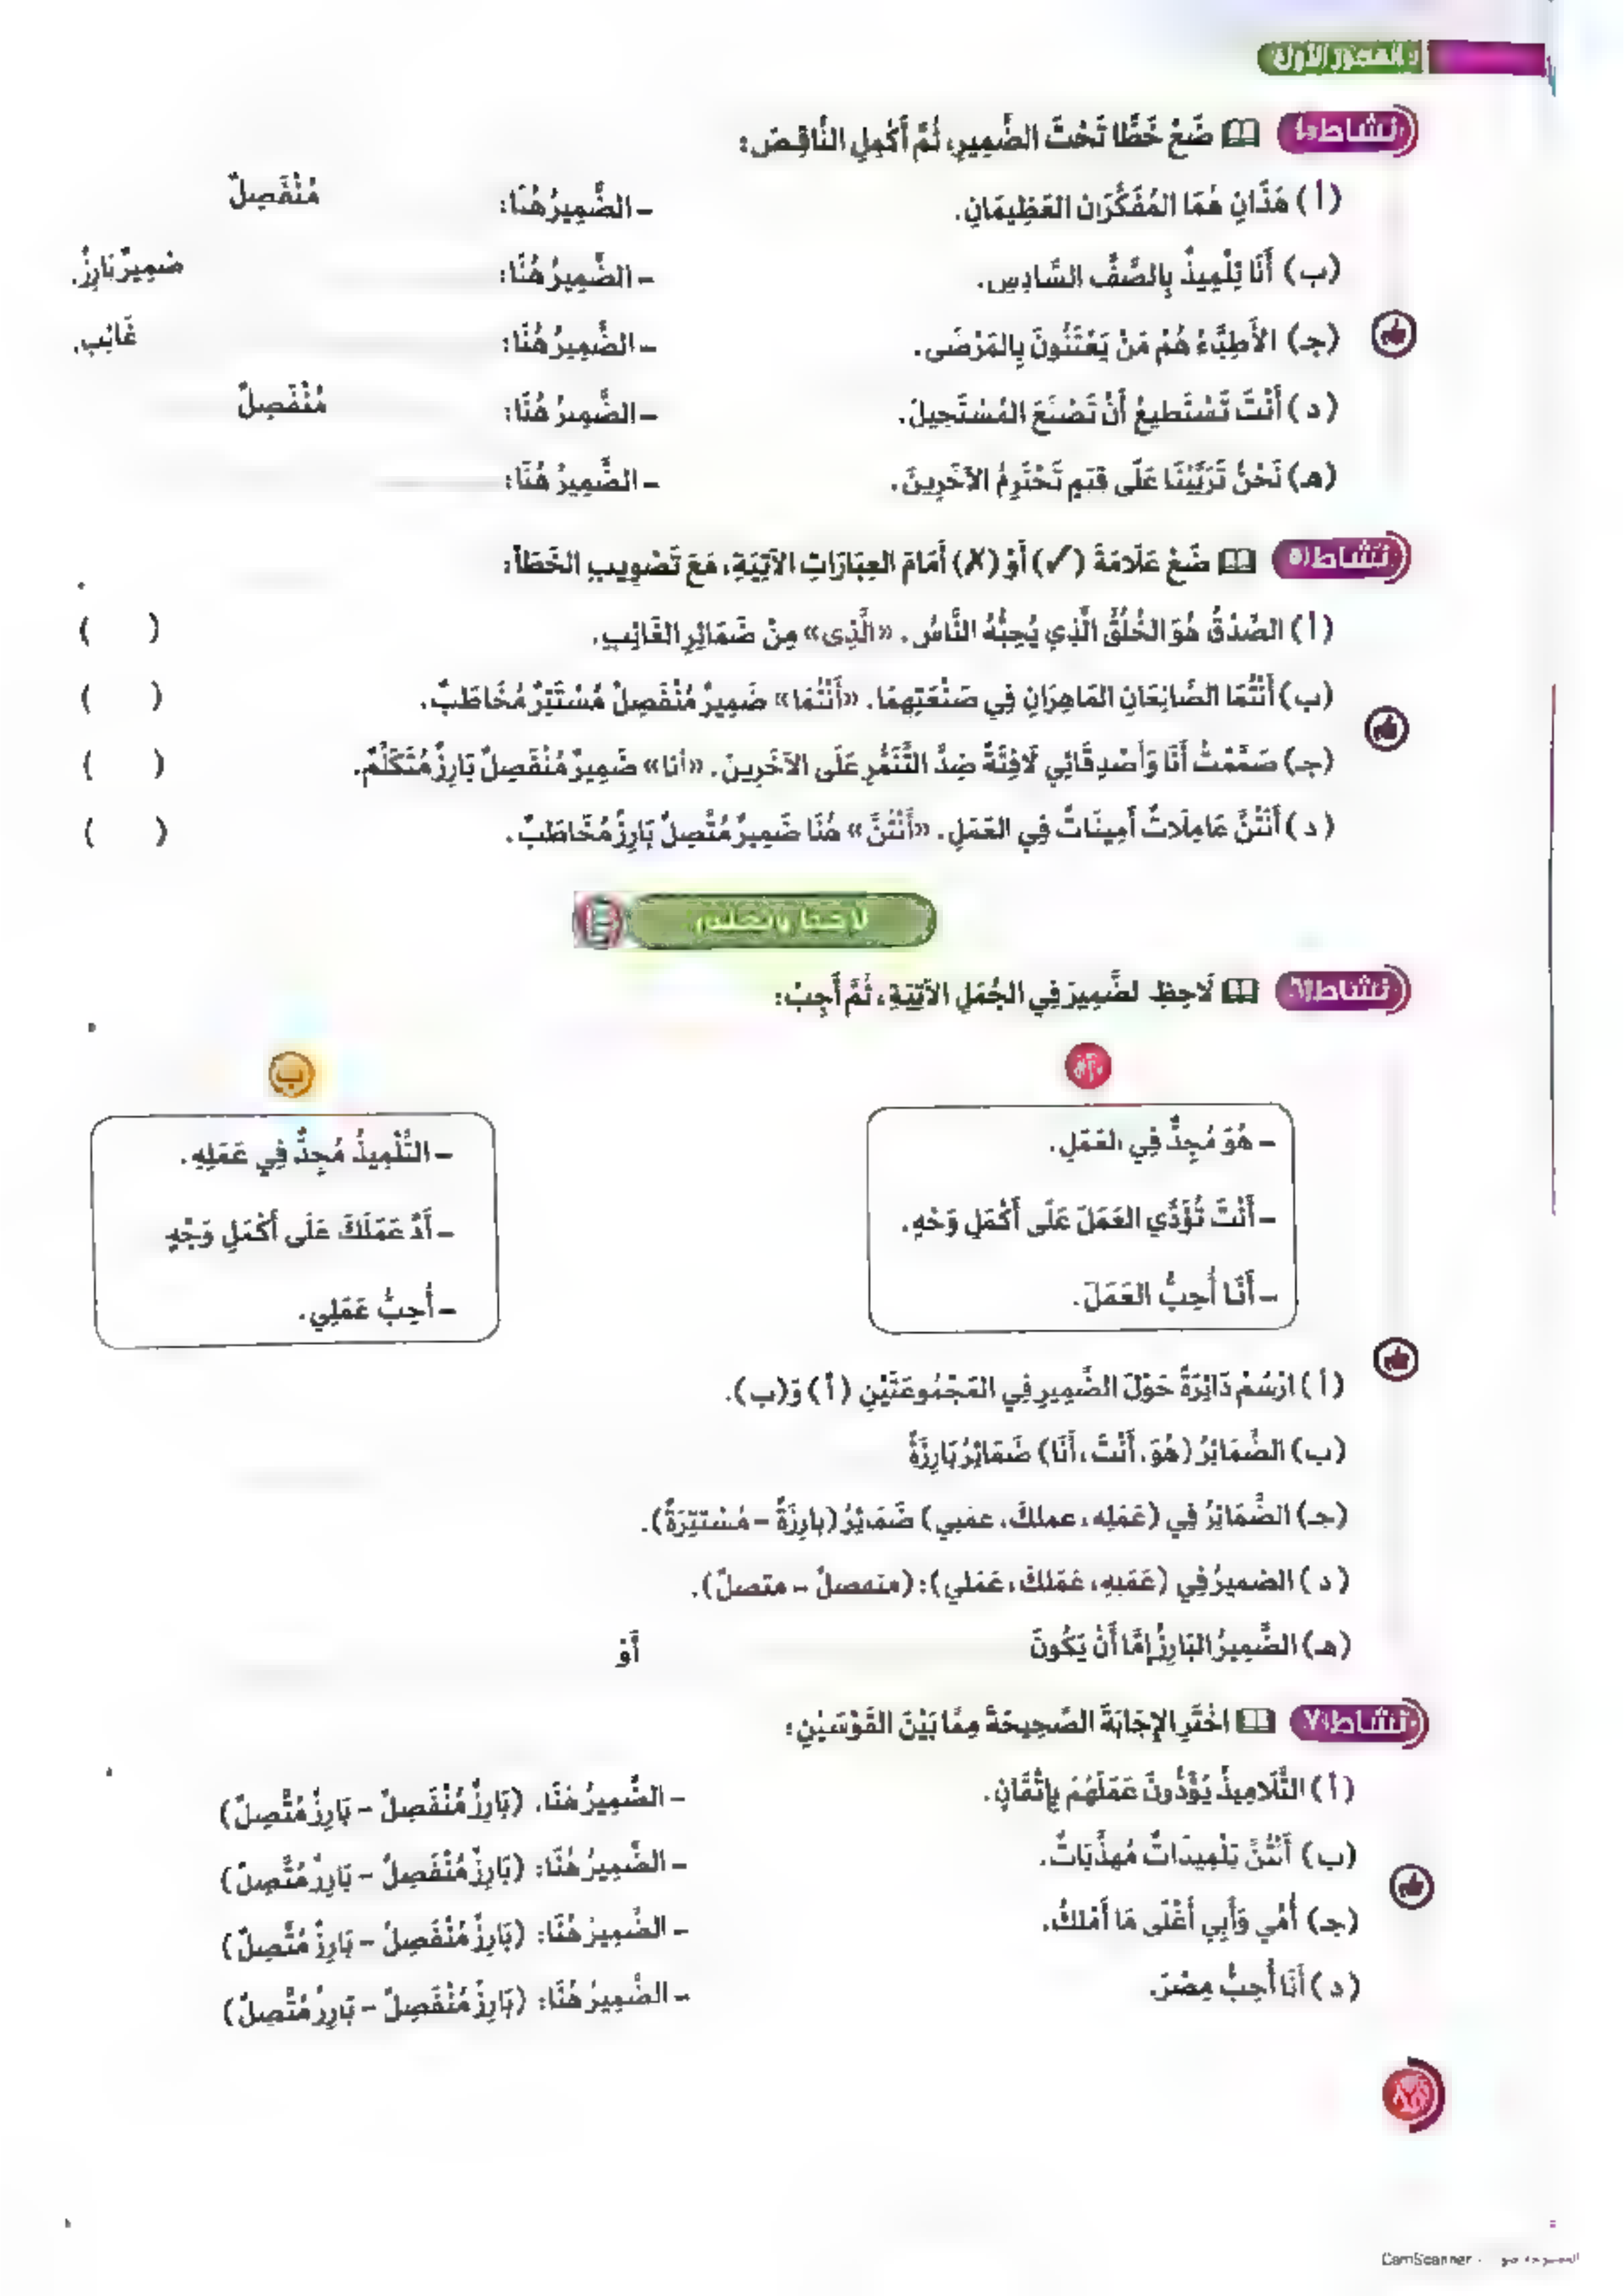 المحور الأول
نشاط
ضَعْ خَطًّا تَحْتَ الضَّمِيرِ، ثُمَّ أَكْمِلِ النَّاقِصَ:
(أ) هَذَانِ هُمَا المُفَكِّرَانِ العَظِيمَانِ. – الضَّمِيرُ هُنَا: مُنْفَصِلٌ
(ب) أَنَا تِلْمِيذٌ بِالصَّفِّ السَّادِسِ. – الضَّمِيرُ هُنَا: ضَمِيرٌ بَارِزٌ.
(جـ) الأَطِبَّاءُ هُمْ مَنْ يَعْتَنُونَ بِالمَرْضَى. – الضَّمِيرُ هُنَا: غَائِبٍ.
(د) أَنْتَ تَسْتَطِيعُ أَنْ تَصْنَعَ المُسْتَحِيلَ. – الضَّمِيرُ هُنَا: مُنْفَصِلٌ
(هـ) نَحْنُ تَرَبَّيْنَا عَلَى قِيَمِ تَحْتَرِمُ الآخَرِينَ. – الضَّمِيرُ هُنَا:
نشاط ٥
ضَعْ عَلَامَةَ (✓) أَوْ (✗) أَمَامَ العِبَارَاتِ الآتِيَةِ، مَعَ تَصْوِيبِ الخَطَأ:
(أ) الصِّدْقُ هُوَ الخُلُقُ الَّذِي يُحِبُّهُ النَّاسُ. «الَّذِى» مِنْ ضَمَائِرِ الغَائِبِ. ( )
(ب) أَنْتُمَا الصَّانِعَانِ المَاهِرَانِ فِي صَنْعَتِهِمَا. «أَنْتُمَا» ضَمِيرٌ مُنْفَصِلٌ مُسْتَتِرٌ مُخَاطَبٌ. ( )
(جـ) صَمَّمْتُ أَنَا وَأَصْدِقَائِي لَافِتَةً ضِدَّ التَّنَمُّرِ عَلَى الآخَرِينَ. «أنا» ضَمِيرٌ مُنْفَصِلٌ بَارِزٌ مُتَكَلِّمٌ. ( )
(د) أَنْتُنَّ عَامِلَاتٌ أَمِينَاتٌ فِي العَمَلِ. «أَنْتُنَّ» هُنَا ضَمِيرٌ مُتَّصِلٌ بَارِزٌ مُخَاطَبٌ. ( )
لاحظ وتعلم
نشاط ٦
لَاحِظِ لضَّمِيرَ فِي الجُمَلِ الآتِيَةِ، ثُمَّ أَجِبْ:
أ
– هُوَ مُجِدٌّ فِي العَمَلِ.
– أَنْتَ تُؤَدِّي العَمَلَ عَلَى أَكْمَلِ وَجْهٍ.
– أَنَا أُحِبُّ العَمَلَ.
ب
– التِّلْمِيذُ مُجِدٌّ فِي عَمَلِهِ.
– أَدِّ عَمَلَكَ عَلَى أَكْمَلِ وَجْهٍ
– أُحِبُّ عَمَلِي.
(أ) ارْسُمْ دَائِرَةً حَوْلَ الضَّمِيرِ فِي المَجْمُوعَتَيْنِ (أ) وَ(ب).
(ب) الضَّمَائِرُ (هُوَ، أَنْتَ، أَنَا) ضَمَائِرُ بَارِزَةٌ
(جـ) الضَّمَائِرُ فِي (عَمَلِه، عملكَ، عملي) ضَمَائِرُ (بارِزَةٌ – مُسْتتِرَةٌ).
(د) الضميرُ فِي (عَمَلِهِ، عَمَلكَ، عَمَلي): (منفصلٌ – متصلٌ).
(هـ) الضَّمِيرُ البَارِزُ إِمَّا أَنْ يَكُونَ أَوْ
نشاط ٧
اخْتَرِ الإِجَابَةَ الصَّحِيحَةَ مِمَّا بَيْنَ القَوْسَيْنِ:
(أ) التَّلَامِيذُ يُؤَدُّونَ عَمَلَهُمْ بِإِتْقَانٍ. – الضَّمِيرُ هُنَا: (بَارِزٌ مُنْفَصِلٌ – بَارِزٌ مُتَّصِلٌ)
(ب) أَنْتُنَّ تِلْمِيذَاتٌ مُهذَّبَاتٌ. – الضَّمِيرُ هُنَا: (بَارِزٌ مُنْفَصِلٌ – بَارِزٌ مُتَّصِلٌ)
(جـ) أُمِّي وَأَبِي أَغْلَى مَا أَمْلكُ. – الضَّمِيرُ هُنَا: (بَارِزٌ مُنْفَصِلٌ – بَارِزٌ مُتَّصِلٌ)
(د) أَنَا أُحِبُّ مِصْرَ. – الضَّمِيرُ هُنَا: (بَارِزٌ مُنْفَصِلٌ – بَارِزٌ مُتَّصِلٌ)
CamScanner